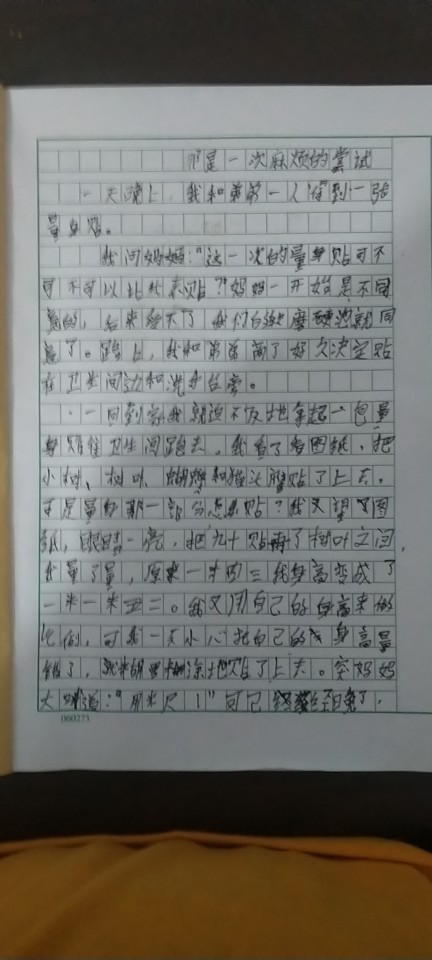 那是一次麻烦的尝试
一天晚上，我和弟弟一人得到一张
量身贴。
我问妈妈："这一次的量身贴可不
可不可以让我来贴？"妈妈一开始是不同
意的，后来受不了我们的死磨硬泡就同
意了。路上，我和弟弟商了好久决定贴
在卫生间边和洗手台旁。
一回到家我就迫不及地拿起一包量
身贴往卫生间跑去。我看了看图纸，把
小树、树叶、蝴蝶和猫头鹰贴了上去。
可是量身那一部分怎么贴？我又望了图
纸，眼睛一亮，把九十贴再了树叶之间，
我量了量，原来一米四三我身高变成了
一米一米五三。我又用自己的身高来做
比例，可我一不小心把自己的身高量
错了，就胡里糊涂地贴了上去。
大叫道："用米尺！"可已经晚了，
060273